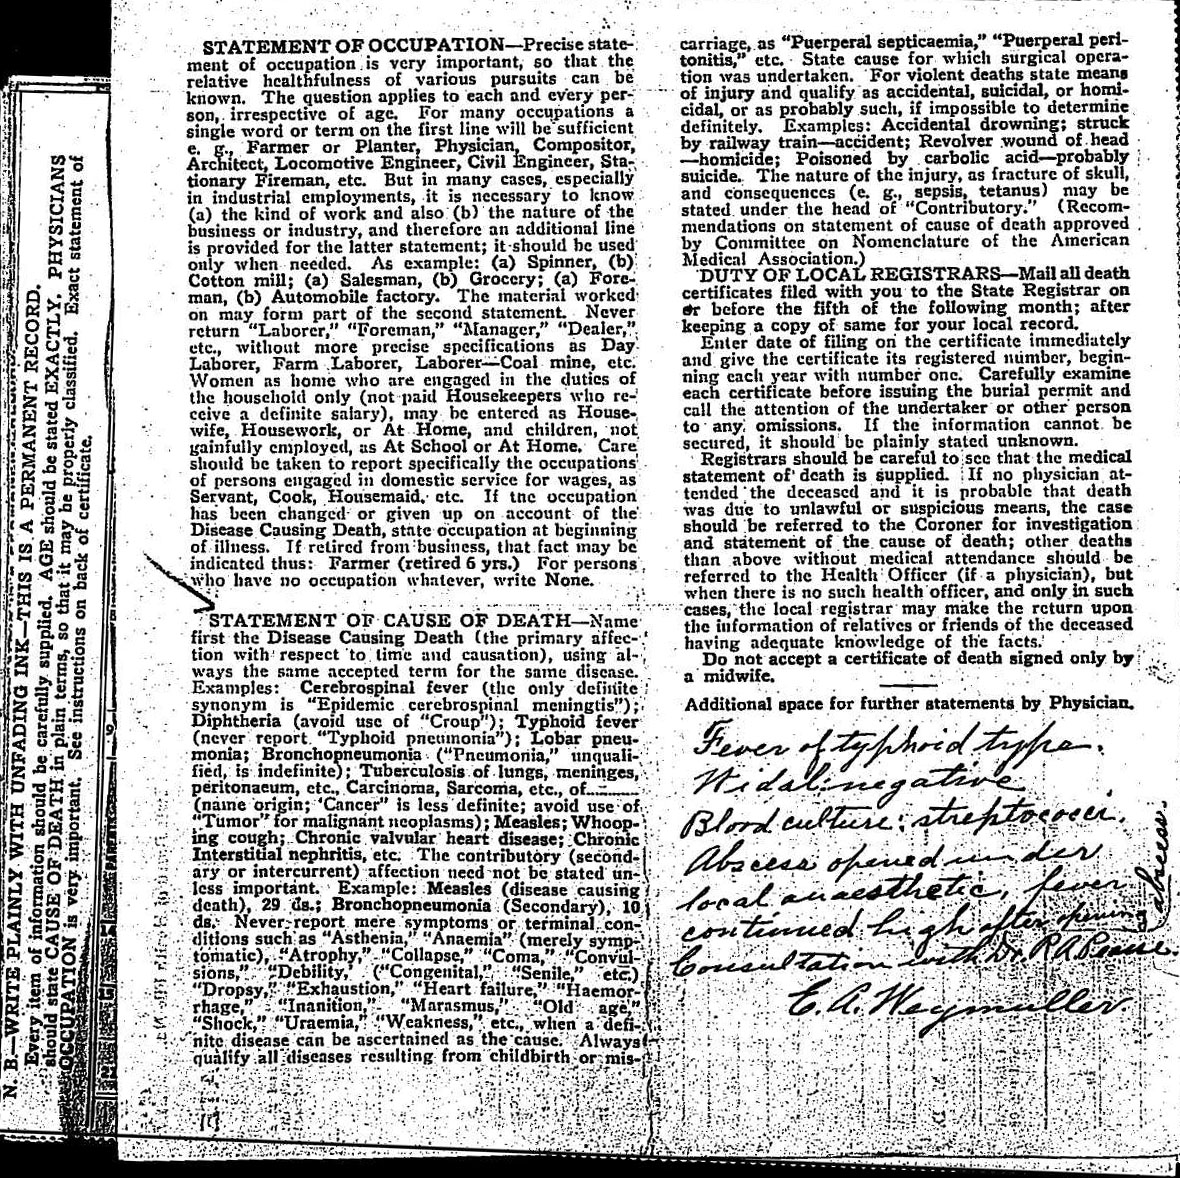 N. B.—WRITE PLAINLY WITH UNFADING INK—THIS IS A PERMANENT RECORD.
Every item of information should be carefully supplied. AGE should be stated EXACTLY. PHYSICIANS
should state CAUSE OF DEATH in plain terms, so that it may be properly classified. Exact statement of
OCCUPATION is very important. See instructions on back of certificate.
STATEMENT OF OCCUPATION—Precise state-
ment of occupation is very important, so that the
relative healthfulness of various pursuits can be
known. The question applies to each and every per-
son, irrespective of age. For many occupations a
single word or term on the first line will be sufficient
e. g., Farmer or Planter, Physician, Compositor,
Architect, Locomotive Engineer, Civil Engineer, Sta-
tionary Fireman, etc. But in many cases, especially
in industrial employments, it is necessary to know
(a) the kind of work and also (b) the nature of the
business or industry, and therefore an additional line
is provided for the latter statement; it should be used
only when needed. As example: (a) Spinner, (b)
Cotton mill; (a) Salesman, (b) Grocery; (a) Fore-
man, (b) Automobile factory. The material worked
on may form part of the second statement. Never
return "Laborer," "Foreman," "Manager," "Dealer,"
etc., without more precise specifications as Day
Laborer, Farm Laborer, Laborer—Coal mine, etc.
Women as home who are engaged in the duties of
the household only (not paid Housekeepers who re-
ceive a definite salary), may be entered as House-
wife, Housework, or At Home, and children, not
gainfully employed, as At School or At Home. Care
should be taken to report specifically the occupations
of persons engaged in domestic service for wages, as
Servant, Cook, Housemaid, etc. If the occupation
has been changed or given up on account of the
Disease Causing Death, state occupation at beginning
of illness. If retired from business, that fact may be
indicated thus: Farmer (retired 6 yrs.) For persons
who have no occupation whatever, write None.
STATEMENT OF CAUSE OF DEATH—Name
first the Disease Causing Death (the primary affec-
tion with respect to time and causation), using al-
ways the same accepted term for the same disease.
Examples: Cerebrospinal fever (the only definite
synonym is "Epidemic cerebrospinal meningtis");
Diphtheria (avoid use of "Croup"); Typhoid fever
(never report "Typhoid pneumonia"); Lobar pneu-
monia; Bronchopneumonia ("Pneumonia," unquali-
fied, is indefinite); Tuberculosis of lungs, meninges,
peritonaeum, etc., Carcinoma, Sarcoma, etc., of........
(name origin; 'Cancer" is less definite; avoid use of
"Tumor" for malignant neoplasms); Measles; Whoop-
ing cough; Chronic valvular heart disease; Chronic
Interstitial nephritis, etc. The contributory (second-
ary or intercurrent) affection need not be stated un-
less important. Example: Measles (disease causing
death), 29 ds.; Bronchopneumonia (Secondary), 10
ds. Never report mere symptoms or terminal con-
ditions such as "Asthenia," "Anaemia" (merely symp-
tomatic), "Atrophy," "Collapse," "Coma," "Convul-
sions," "Debility,' ("Congenital," "Senile," etc.)
"Dropsy," "Exhaustion," "Heart failure," "Haemor-
rhage," "Inanition," "Marasmus," "Old age,"
"Shock," "Uraemia," "Weakness," etc., when a defi-
nite disease can be ascertained as the cause. Always
qualify all diseases resulting from childbirth or mis-
carriage, as "Puerperal septicaemia," "Puerperal peri-
tonitis," etc. State cause for which surgical opera-
tion was undertaken. For violent deaths state means
of injury and qualify as accidental, suicidal, or homi-
cidal, or as probably such, if impossible to determine
definitely. Examples: Accidental drowning; struck
by railway train—accident; Revolver wound of head
—homicide; Poisoned by carbolic acid—probably
suicide. The nature of the injury, as fracture of skull,
and consequences (e. g., sepsis, tetanus) may be
stated under the head of "Contributory." (Recom-
mendations on statement of cause of death approved
by Committee on Nomenclature of the American
Medical Association.)
DUTY OF LOCAL REGISTRARS—Mail all death
certificates filed with you to the State Registrar on
or before the fifth of the following month; after
keeping a copy of same for your local record.
Enter date of filing on the certificate immediately
and give the certificate its registered number, begin-
ning each year with number one. Carefully examine
each certificate before issuing the burial permit and
call the attention of the undertaker or other person
to any omissions. If the information cannot be
secured, it should be plainly stated unknown.
Registrars should be careful to see that the medical
statement of death is supplied. If no physician at-
tended the deceased and it is probable that death
was due to unlawful or suspicious means, the case
should be referred to the Coroner for investigation
and statement of the cause of death; other deaths
than above without medical attendance should be
referred to the Health Officer (if a physician), but
when there is no such health officer, and only in such
cases, the local registrar may make the return upon
the information of relatives or friends of the deceased
having adequate knowledge of the facts.
Do not accept a certificate of death signed only by
a midwife.
Additional space for further statements by Physician.
Fever of typhoid type.
Widal: negative
Blood culture: streptococci.
Abscess opened under
local anaesthetic, fever
continued high after opening abscess.
Consultation with Dr. R A Pearse.
E. A. Wegmuller